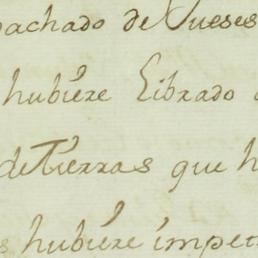 pachado de Jueses
hubiere Librado
de tierras que h
s hubiere impet